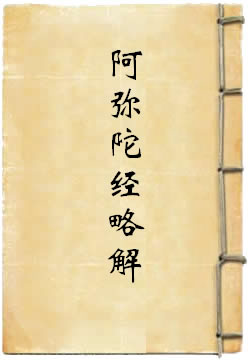 阿弥陀经略解